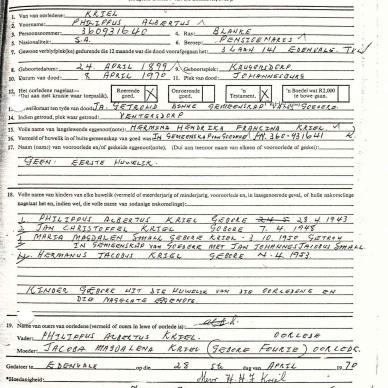 1. Van van oorledene: KRIEL
2. Voorname: PHILIPPUS ALBERTUS
3. Persoonsnommer: 360931640 4. Ras: BLANKE
5. Nasionaliteit: S.A. 6. Beroep: PENSIOENARIS
7. Gewone verblyfplek(ke) gedurende die 12 maande wat die dood voorafgegaan het: 3 LAAN 141 EDENVALE. TVL
8. Geboortedatum: 24. APRIL 1899 9. Geboorteplek: KRUGERSDORP.
10. Datum van dood: 8 APRIL 1970 11. Plek van dood: JOHANNESBURG
12. Het oorledene nagelaat— (Dui aan met kruisie waar toepaslik.) Roerende goed. X Onroerende goed. 'n Testament. X 'n Boedel wat R2,000 te bowe gaan.
JA. GETROUD BINNE GEMEENSKAP VAN GOEDERE.
14. Indien getroud, plek waar getroud: VENTERSDORP
15. Volle name van langslewende eggenoot(note): HERMINA HENDRIKA FRANCINA KRIEL.
16. Vermeld of huwelik in of buite gemeenskap van goed was: IN GEMEENSKAP VAN GOEDERE
17. Naam (name) van vooroorlede en/of geskeide eggenoot(note). (Dui aan teenoor naam van elkeen of vooroorlede of geskei):
GEEN. EERSTE HUWELIK.
18. Volle name van kinders van elke huwelik (vermeld of meerderjarig of minderjarig, voorooorlede en, in laasgenoemde geval, of hulle nakomelinge
nagelaat het en, indien wel, die volle name van sodanige nakomelinge):
1. PHILIPPUS ALBERTUS KRIEL GEBORE 28.4.1943
2. JAN CHRISTOFFEL KRIEL GEBORE 7.4.1948
3. MARIA MAGDALEN SMALL GEBORE KRIEL - 3.10.1950 GETROUD
IN GEMEENSKAP VAN GOEDERE MET JAN JOHANNES JACOBUS SMALL
4. HERMANUS JACOBUS KRIEL GEBORE 4.1953.
KINDER GEBORE UIT DIE HUWELIK VAN DIE OORLEDENE EN
DIE NAGELATE EGGENOTE.
19. Name van ouers van oorledene (vermeld of ouers in lewe of oorlede is):
Vader: PHILIPPUS ALBERTUS KRIEL. OORLEDE
Moeder: JACOBA MAGDALENA KRIEL (GEBORE FOURIE) OORLEDE.
Gedateer te EDENVALE die 28 ste dag van APRIL 1970
*Hoedanigheid: